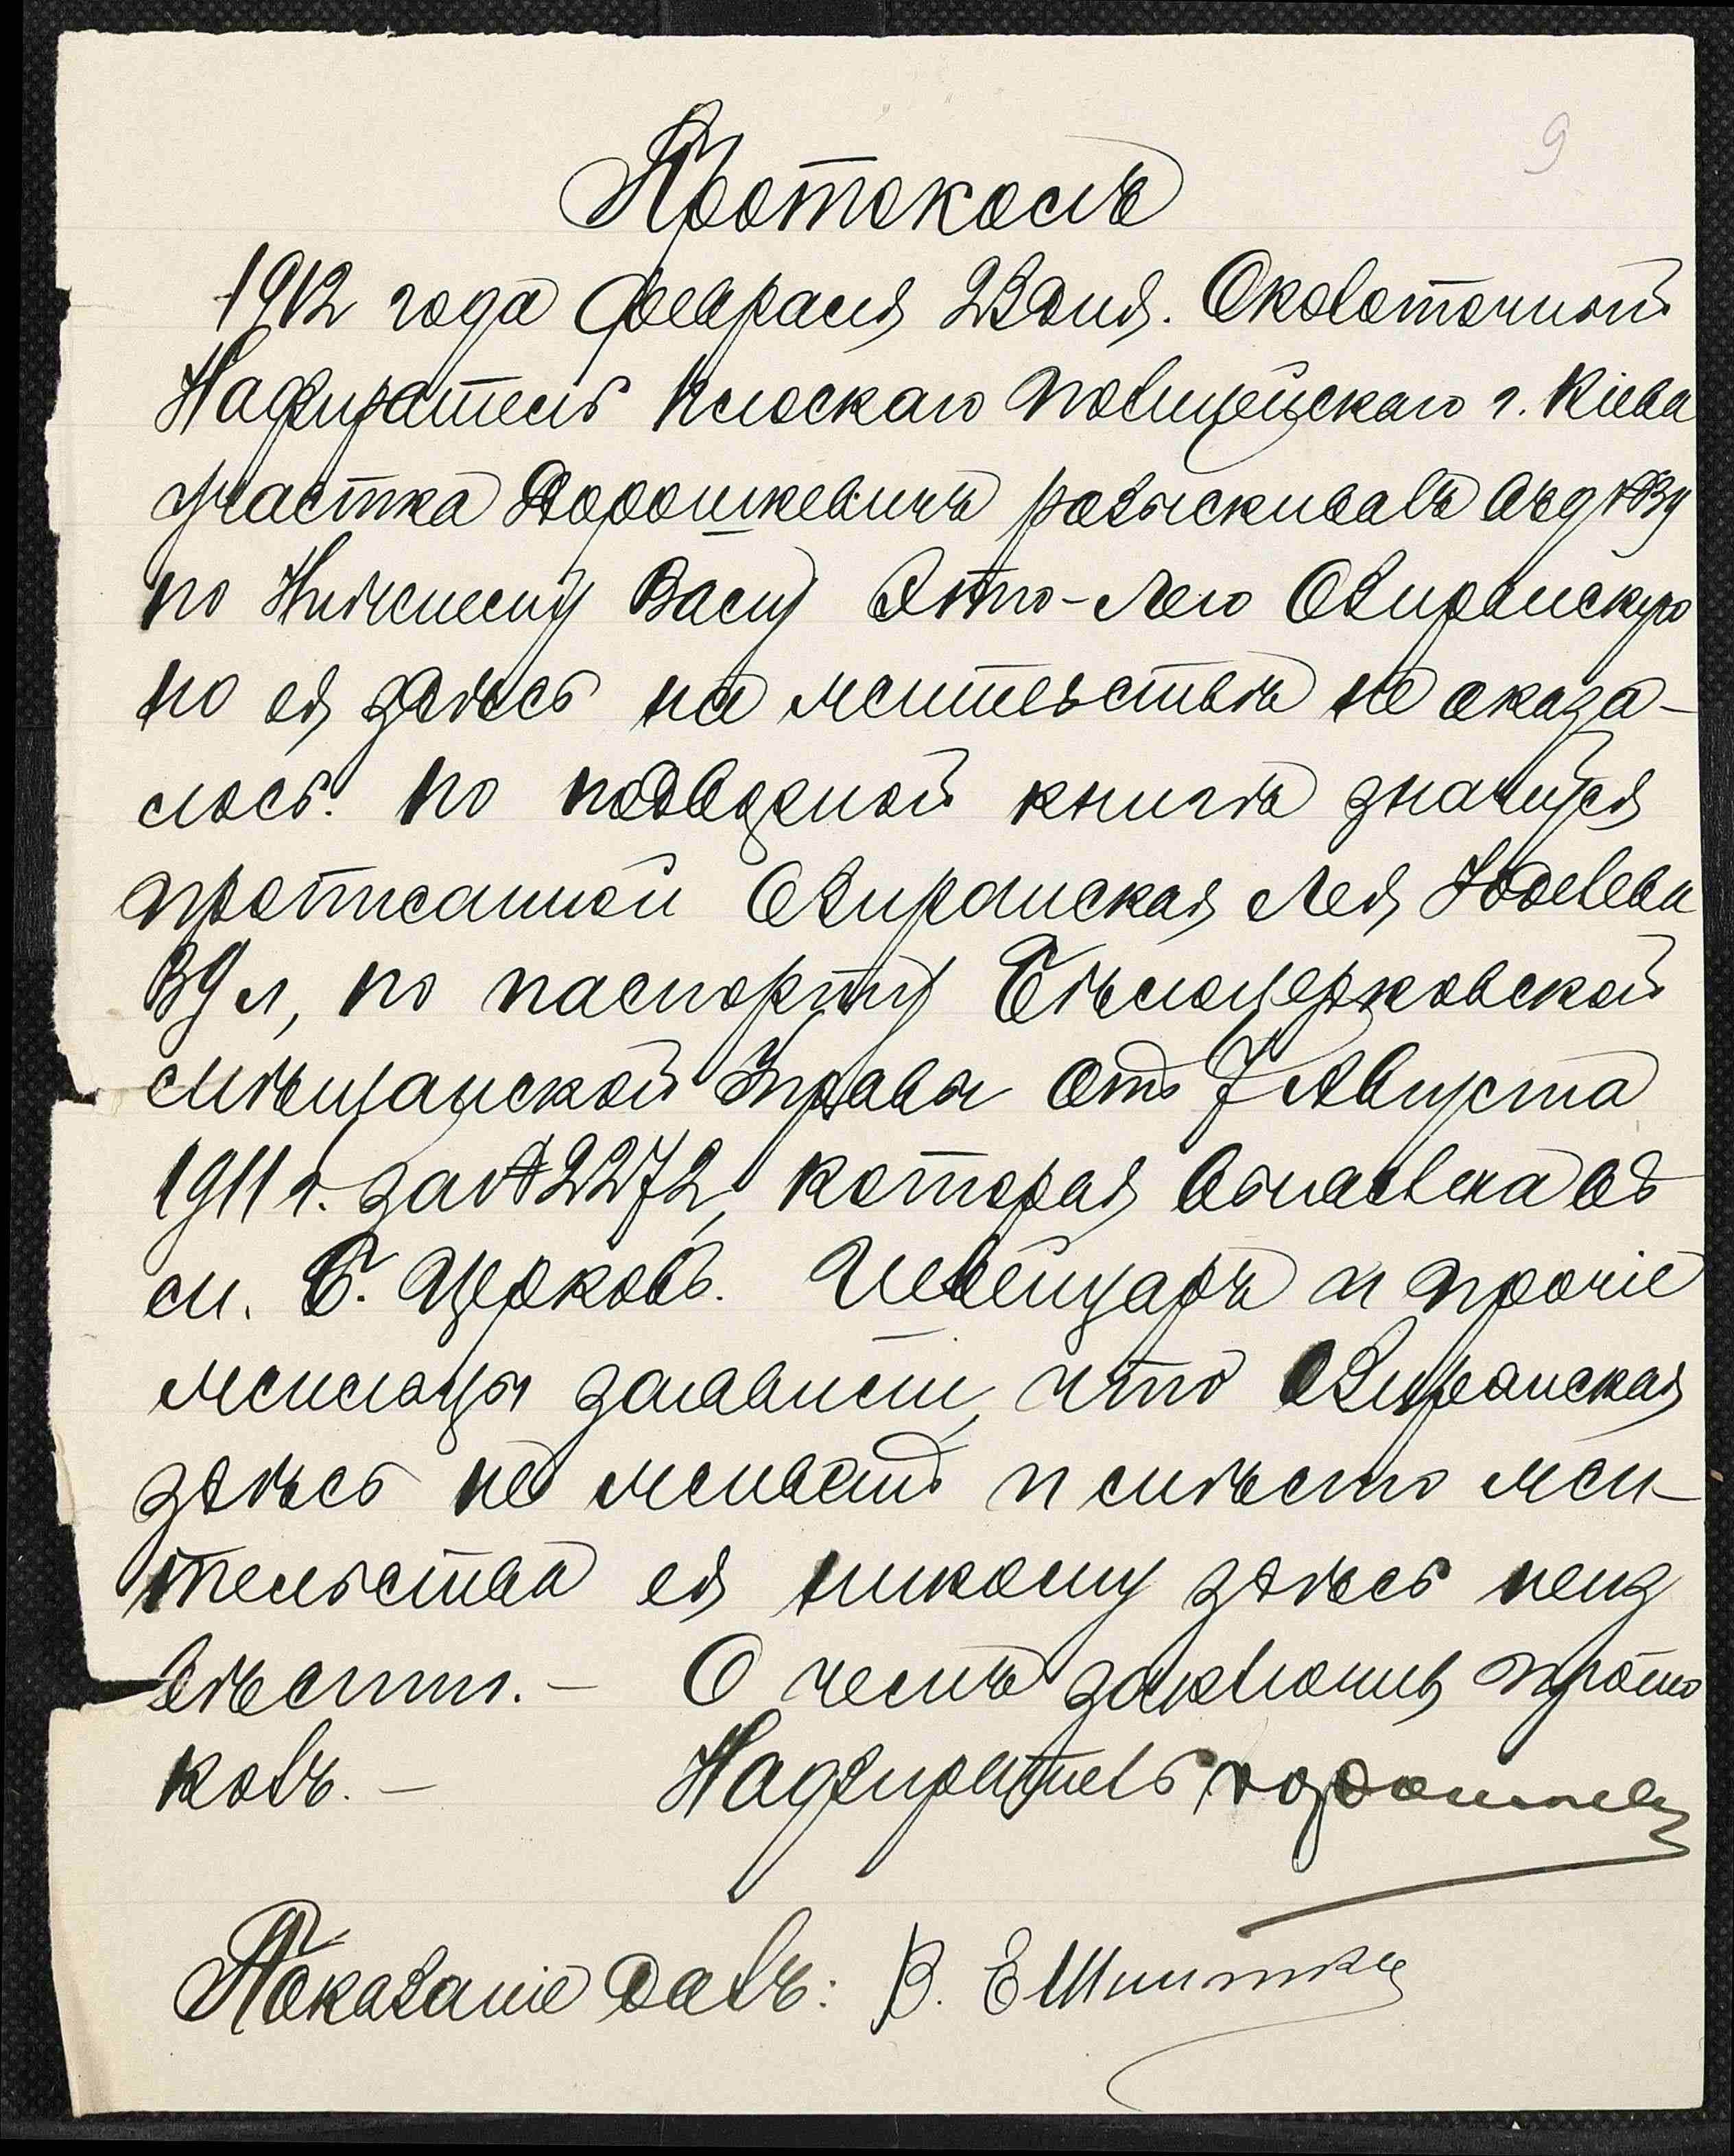 9
Протоколъ
1912 года Февраля 23 дня. Околоточный
Надзиратель Плоскаго полицейскаго г. Кіева
участка Дорошкевичъ розыскивалъ въ д №39
по Нижнему Валу Этто-Лею Озиранскую
но ея здѣсь на жительствѣ не оказа-
лось. По подводной книгѣ значится
прописанной Озиранская Лея Юделева
39 л, по паспорту Бѣлоцерковской
мѣщанской Управы отъ 7 Августа
1911 г. за №2272, которая выбыла въ
м. Б. Церковь. Швейцаръ и прочіе
жильцы заявили, что Озиранская
здѣсь не живетъ и мѣсто жи-
тельства ея никому здѣсь неиз
вѣстно. – О чемъ заключилъ прото
колъ. – Надзиратель
Показаніе далъ: В. Е